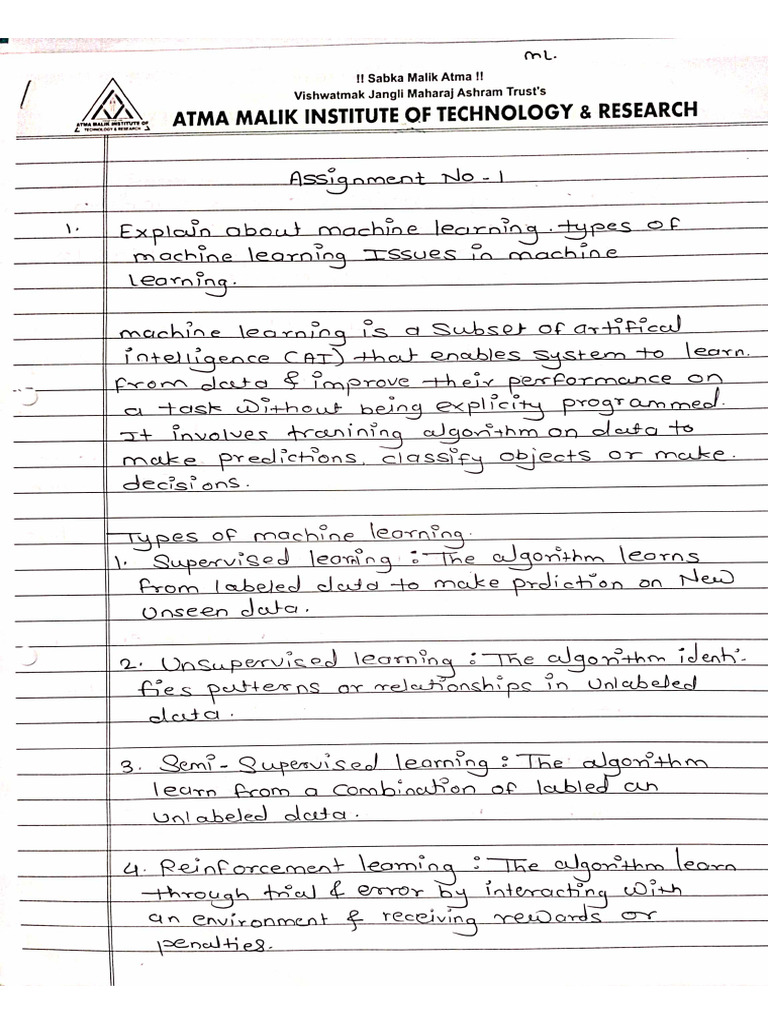 mL.
!! Sabka Malik Atma !!
Vishwatmak Jangli Maharaj Ashram Trust's
ATMA MALIK INSTITUTE OF TECHNOLOGY & RESEARCH
ATMA MALIK INSTITUTE OF
TECHNOLOGY & RESEARCH
Assignment No - 1
1. Explain about machine learning. types of
machine learning Issues in machine
learning.
machine learning is a subset of artifical
intelligence (AI) that enables system to learn.
from data & improve their performance on
a task without being explicity programmed.
It involves tranining algorithm on data to
make predictions, classify objects or make.
decisions.
Types of machine learning.
1. Supervised learning : The algorithm learns
from labeled data to make prdiction on New
Unseen data.
2. Unsupervised learning : The algorithm identi-
fies patterns or relationships in unlabeled
data.
3. Semi-Supervised learning : The algorithm
learn from a combination of labled an
unlabeled data.
4. Reinforcement learning : The algorithm learn
through trial & error by interacting with
an environment & receiving rewards or
penalties.